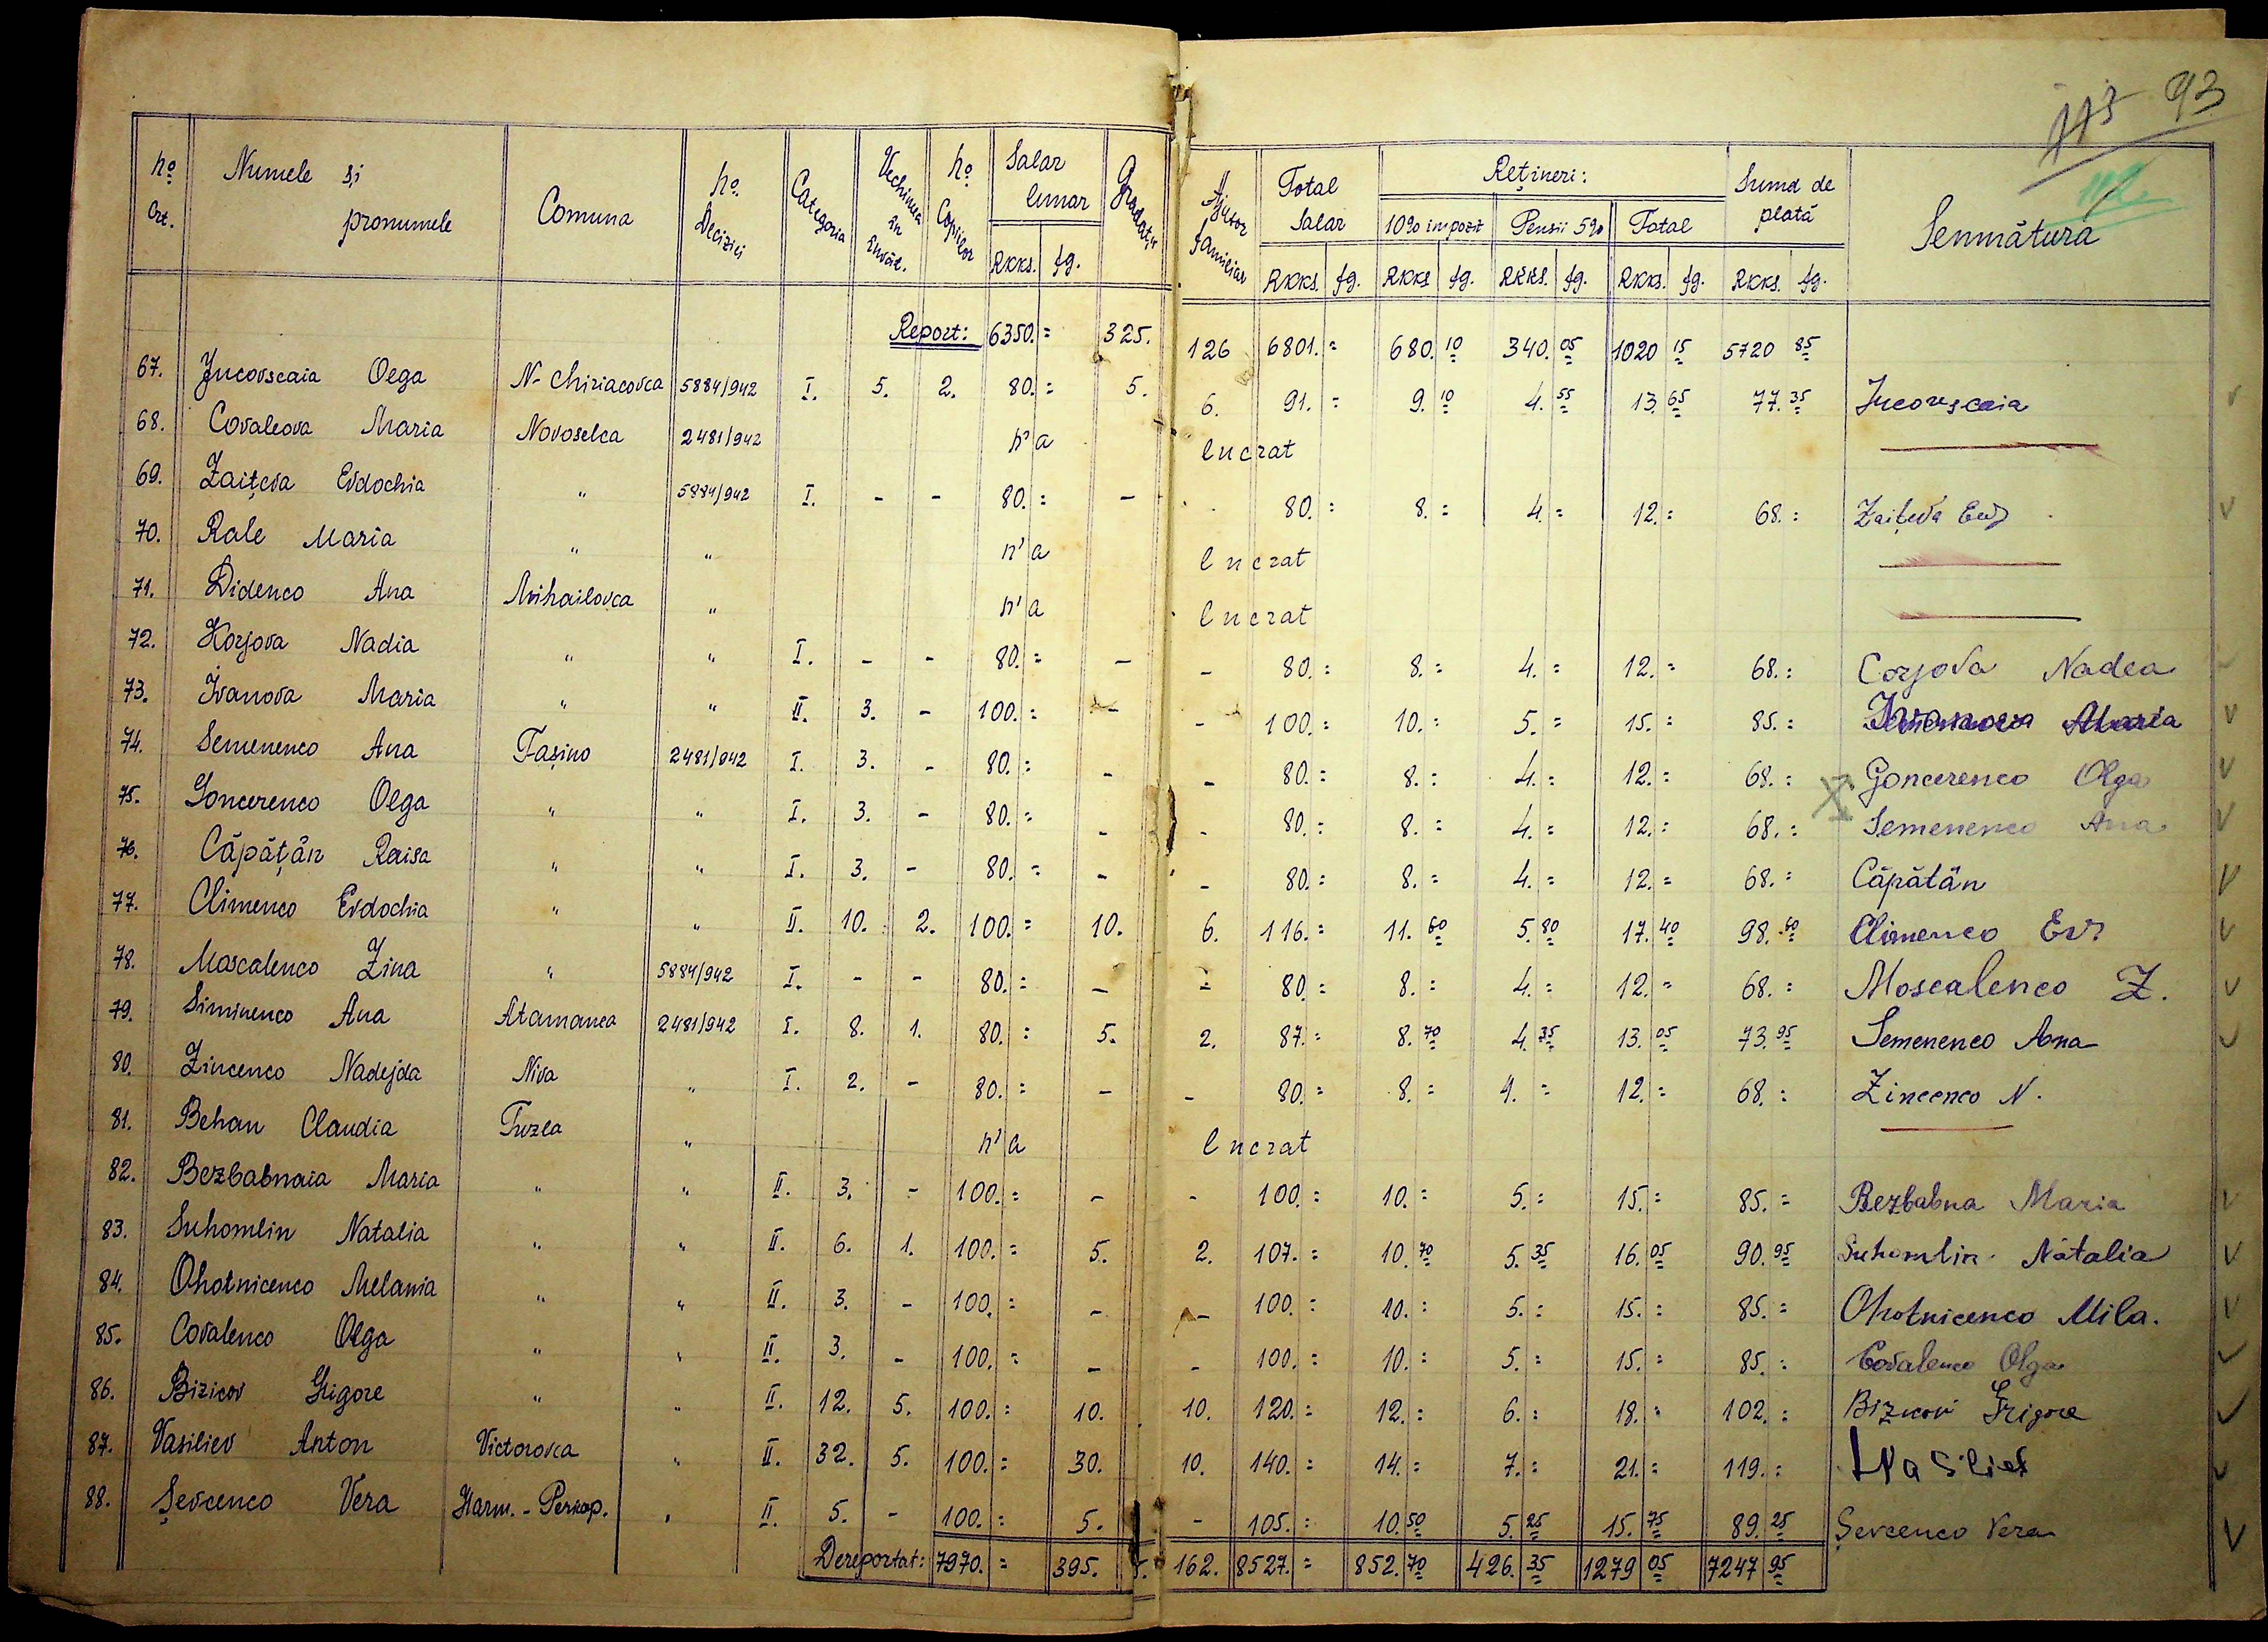 93
113
112
No Crt. Numele și pronumele Comuna No. Decizici Categoria Vechimea în Învăț. No Copiilor Salar lunar RKKS. fg. Gradații Ajutor familiar Total Salar RKKS. fg. Rețineri: 10% impozit RKKS fg. Pensii 5% RKKS. fg. Total RKKS. fg. Suma de plată RKKS. fg. Semnătura
Report: 6350.= 325. 126 6801.= 680.10 340.05 1020 15 5720 85
67. Jucovscaia Olga N-Chiriacovca 5884/942 I. 5. 2. 80.= 5. 6. 91.= 9.10 4.55 13.65 77.35 Jucovscaia
68. Covaleova Maria Novoselca 2481/942 n'a lucrat
69. Zaițeva Evdochia " 5884/942 I. - - 80.= - 80.= 8.= 4.= 12.= 68.= Zaițeva Evd
70. Rale Maria " " n'a lucrat
71. Didenco Ana Mihailovca " n'a lucrat
72. Korjova Nadia " " I. - - 80.= - - 80.= 8.= 4.= 12.= 68.= Corjova Nadea
73. Ivanova Maria " " II. 3. - 100.= - - 100.= 10.= 5.= 15.= 85.= Ivanova Maria
74. Semenenco Ana Fașino 2481/942 I. 3. - 80.= - - 80.= 8.= 4.= 12.= 68.= Goncerenco Olga
75. Goncerenco Olga " " I. 3. - 80.= - - 80.= 8.= 4.= 12.= 68.= Semenenco Ana
76. Căpățân Raisa " " I. 3. - 80.= - - 80.= 8.= 4.= 12.= 68.= Căpătân
77. Climenco Evdochia " " II. 10. 2. 100.= 10. 6. 116.= 11.60 5.80 17.40 98.60 Climenco Ev
78. Moscalenco Zina " 5884/942 I. - - 80.= - - 80.= 8.= 4.= 12.= 68.= Moscalenco Z.
79. Siminenco Ana Atamanca 2481/942 I. 8. 1. 80.= 5. 2. 87.= 8.70 4.35 13.05 73.95 Semenenco Ana
80. Zincenco Nadejda Niva " I. 2. - 80.= - - 80.= 8.= 4.= 12.= 68.= Zincenco N.
81. Behan Claudia Tuzla " n'a lucrat
82. Bezbabnaia Maria " " II. 3. - 100.= - - 100.= 10.= 5.= 15.= 85.= Bezbabna Maria
83. Suhomlin Natalia " " II. 6. 1. 100.= 5. 2. 107.= 10.70 5.35 16.05 90.95 Suhomlin Natalia
84. Ohotnicenco Melania " " II. 3. - 100.= - - 100.= 10.= 5.= 15.= 85.= Ohotnicenco Mila.
85. Covalenco Olga " " II. 3. - 100.= - - 100.= 10.= 5.= 15.= 85.= Covalenco Olga
86. Bizicov Grigore " " II. 12. 5. 100.= 10. 10. 120.= 12.= 6.= 18.= 102.= Bizicov Grigore
87. Vasiliev Anton Victorovca " II. 32. 5. 100.= 30. 10. 140.= 14.= 7.= 21.= 119.= Vasilief
88. Șevcenco Vera Harm.-Perkop. " II. 5. - 100.= 5. - 105.= 10.50 5.25 15.75 89.25 Șevcenco Vera
Dereportat: 7970.= 395. 162. 8527.= 852.70 426.35 1279 05 7247 95